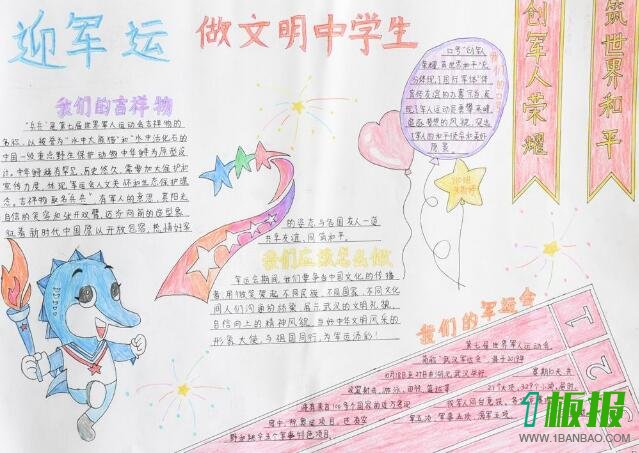 迎军运 做文明中学生
创军人荣耀
筑世界和平
我们的吉祥物
"兵兵"是第七届世界军人运动会吉祥物的
名称,以被誉为"水中大熊猫"和"水中活化石"的
中国一级重点野生保护动物中华鲟为原型设
计。中华鲟稀有罕见,历史悠久,需要加大保护和
宣传力度,体现军运会人文关怀和生态保护理
念。吉祥物取名"兵兵",有军人的意思,其阳光
自信的笑容和张开双臂,迈步向前的造型象
征着新时代中国愿以开放包容,热情好客
的姿态与各国友人一道
共享友谊、同筑和平。
我们的口号
口号"创军人
荣耀,筑世界和平"充
我们应该怎么做
军运会期间,我们要争当中国文化的传播
者,用微笑架起不同民族、不同国家、不同文化
间人们沟通的桥梁,展示武汉的文明礼貌、
自信向上的精神风貌,当好中华文明风采的
形象大使,与祖国同行,为军运添彩!
我们的军运会
第七届世界军人运动会,
简称"武汉军运会",将于2019年
10月18日至27日在湖北武汉举行,
27个大项、329个小项
空军五项、军事五项、海军五项、
1
2
1板报
WWW.1BANBAO.COM